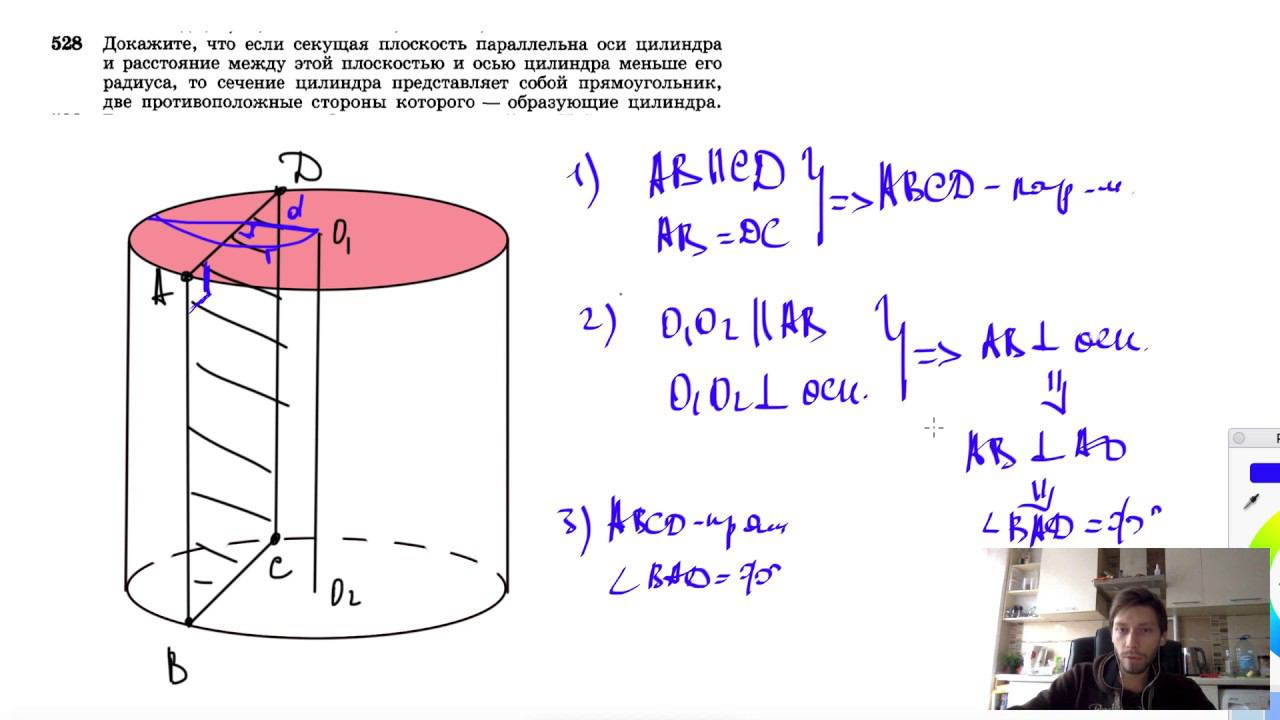 528 Докажите, что если секущая плоскость параллельна оси цилиндра
и расстояние между этой плоскостью и осью цилиндра меньше его
радиуса, то сечение цилиндра представляет собой прямоугольник,
две противоположные стороны которого — образующие цилиндра.
D
d
O₁
r
A
C
O₂
B
1) AB||CD
AB = DC
=> ABCD - пар-м.
2) O₁O₂ || AB
O₁O₂ ⊥ осн.
=> AB ⊥ осн.
⇓
AB ⊥ AD
⇓
∠BAD = 90°
3) ABCD - прям
∠BAD = 90°